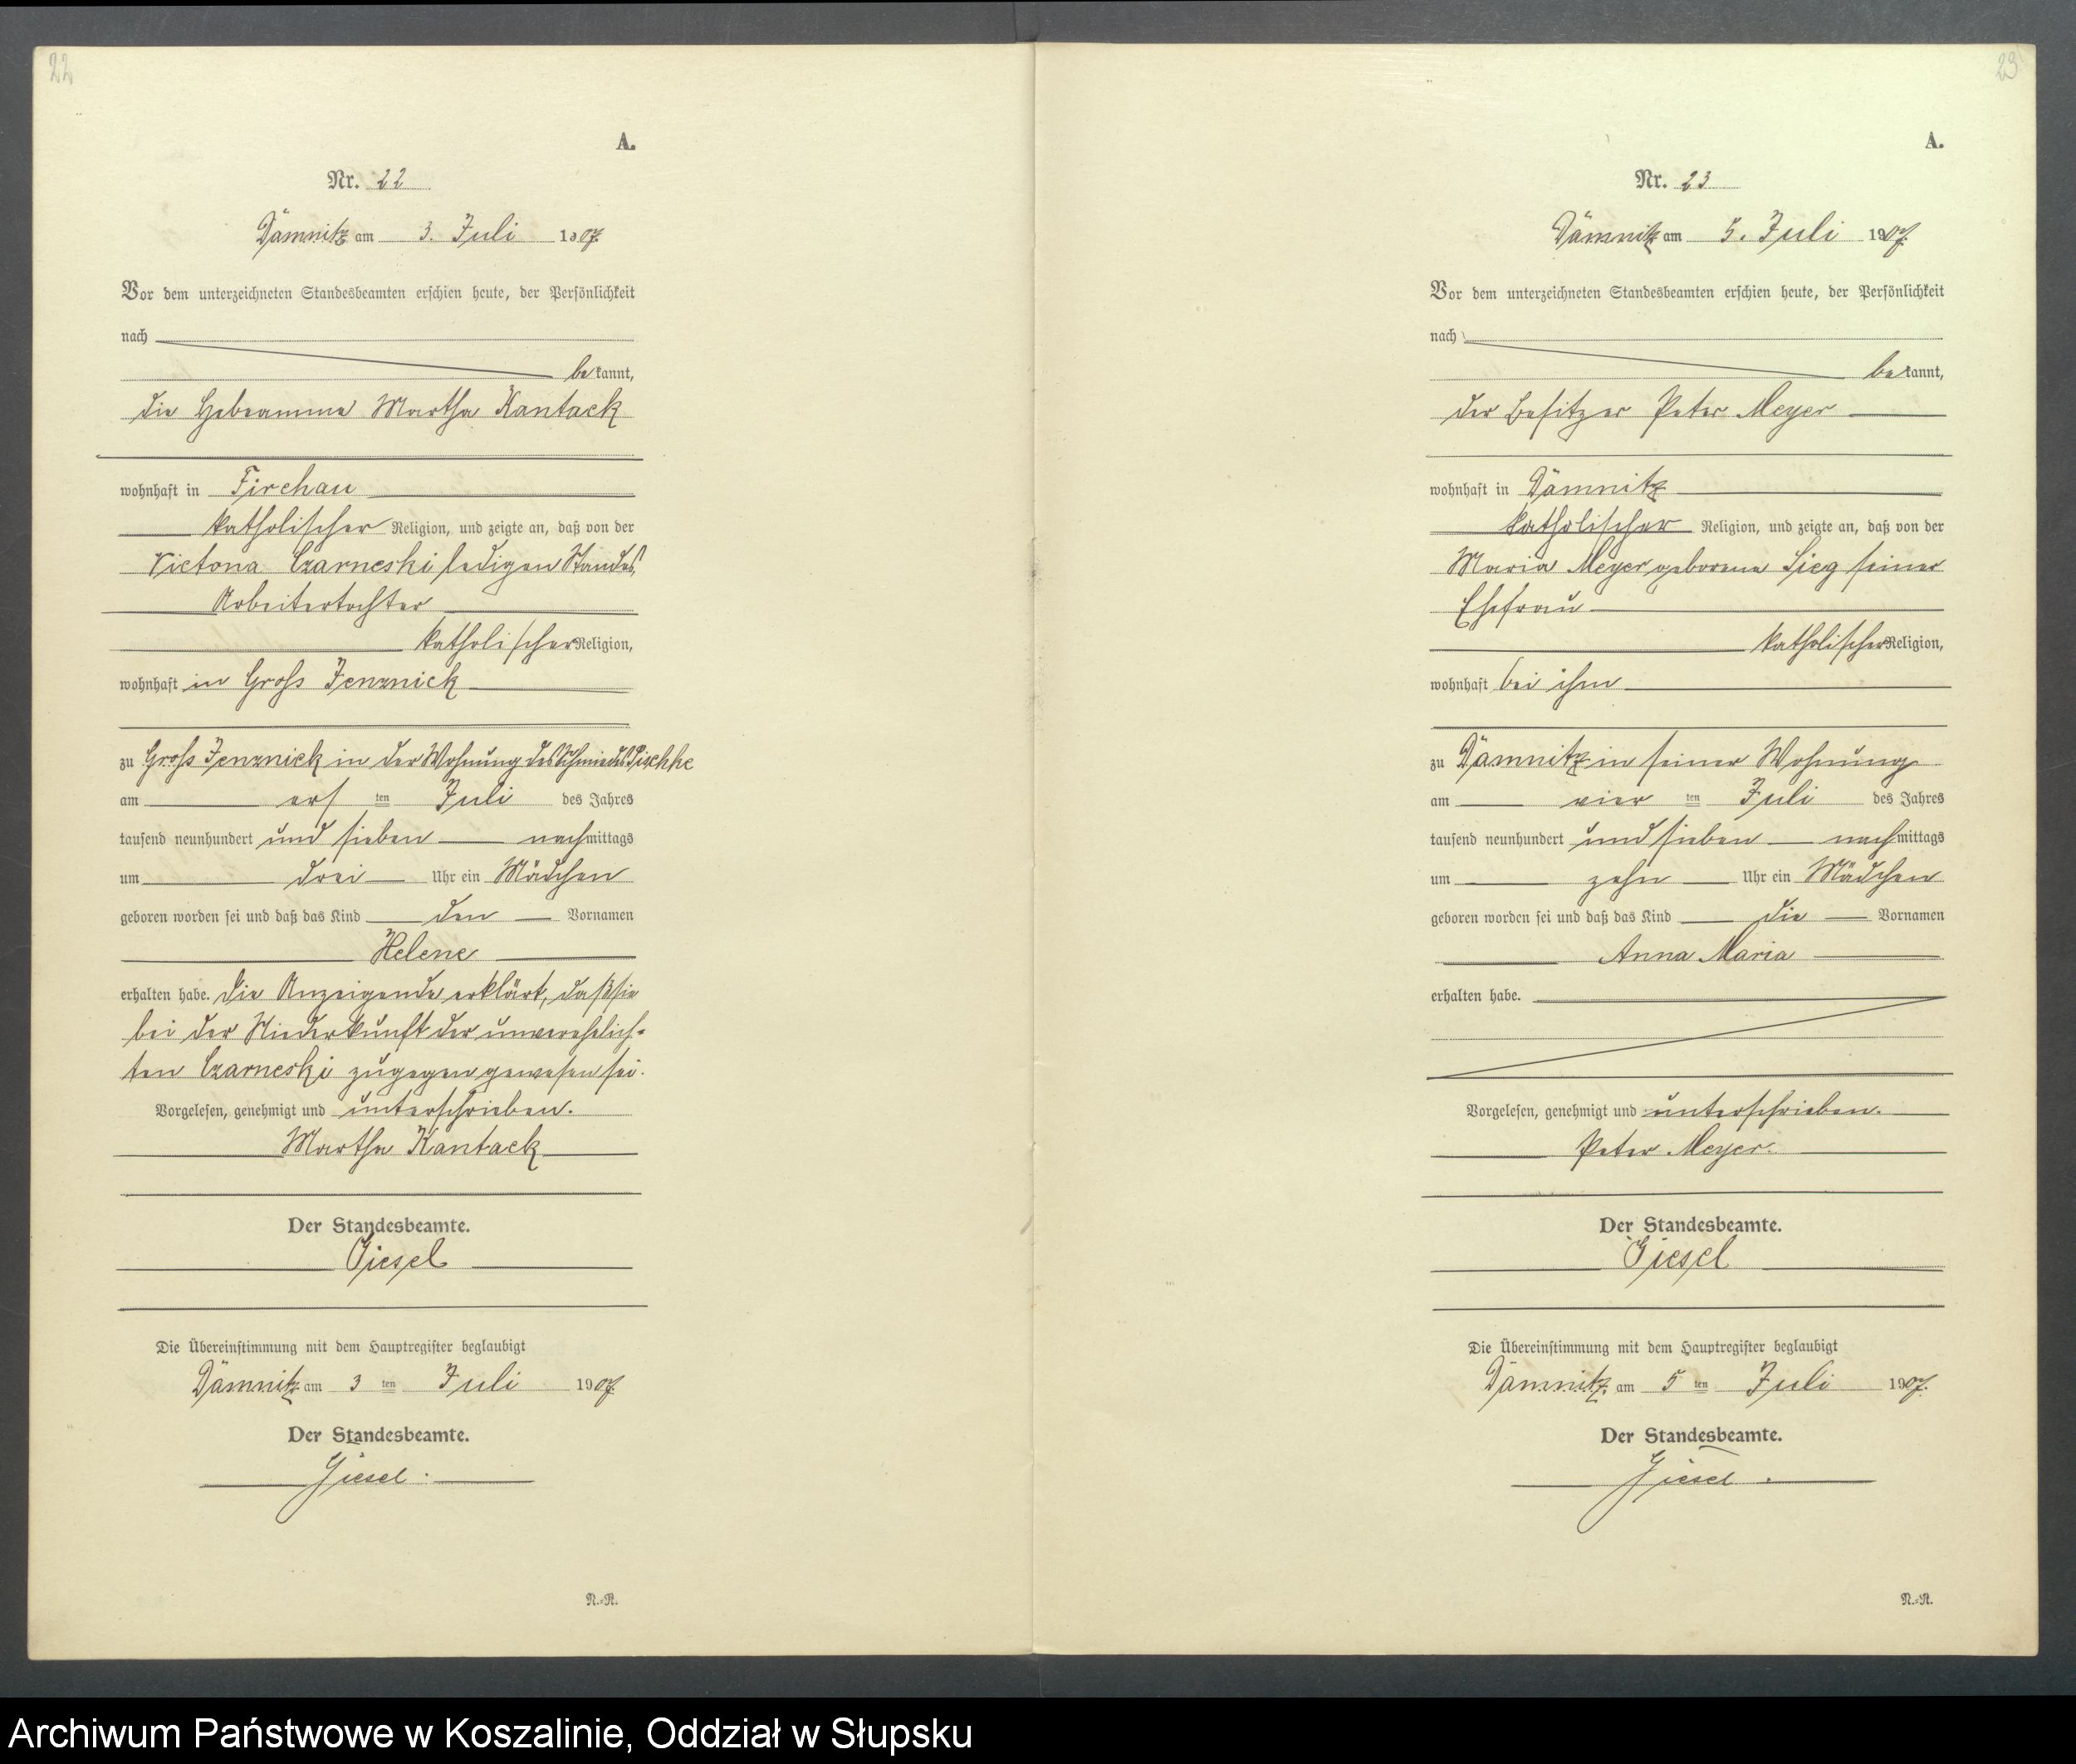 22
A.
Nr. 22
Dämnitz am 3. Juli 1907.
Vor dem unterzeichneten Standesbeamten erschien heute, der Persönlichkeit
nach
bekannt,
die Hebeamme Martha Kantack
wohnhaft in Firchau
katholischer Religion, und zeigte an, daß von der
Victoria Czarneski ledigen Standes,
Arbeitertochter
katholischer Religion,
wohnhaft in Gross Jenznick
zu Gross Jenznick in der Wohnung des Schmiedes
am ersten Juli des Jahres
tausend neunhundert und sieben nachmittags
um drei Uhr ein Mädchen
geboren worden sei und daß das Kind den Vornamen
Helene
erhalten habe. Die Anzeigende erklärt, daß sie
bei der Niederkunft der unverehelich-
ten Czarneski zugegen gewesen sei.
Vorgelesen, genehmigt und unterschrieben.
Martha Kantack
Der Standesbeamte.
Giesel
Die Übereinstimmung mit dem Hauptregister beglaubigt
Dämnitz am 3 ten Juli 1907.
Der Standesbeamte.
Giesel.
N.-R.
23
A.
Nr. 23
Dämnitz am 5. Juli 1907.
Vor dem unterzeichneten Standesbeamten erschien heute, der Persönlichkeit
nach
bekannt,
der Besitzer Peter Meyer
wohnhaft in Dämnitz
katholischer Religion, und zeigte an, daß von der
Maria Meyer geborene Sieg seiner
Ehefrau
katholischer Religion,
wohnhaft bei ihm
zu Dämnitz in seiner Wohnung
am vier ten Juli des Jahres
tausend neunhundert und sieben nachmittags
um zehn Uhr ein Mädchen
geboren worden sei und daß das Kind die Vornamen
Anna Maria
erhalten habe.
Vorgelesen, genehmigt und unterschrieben.
Peter Meyer.
Der Standesbeamte.
Giesel
Die Übereinstimmung mit dem Hauptregister beglaubigt
Dämnitz am 5 ten Juli 1907.
Der Standesbeamte.
Giesel.
N.-R.
Archiwum Państwowe w Koszalinie, Oddział w Słupsku